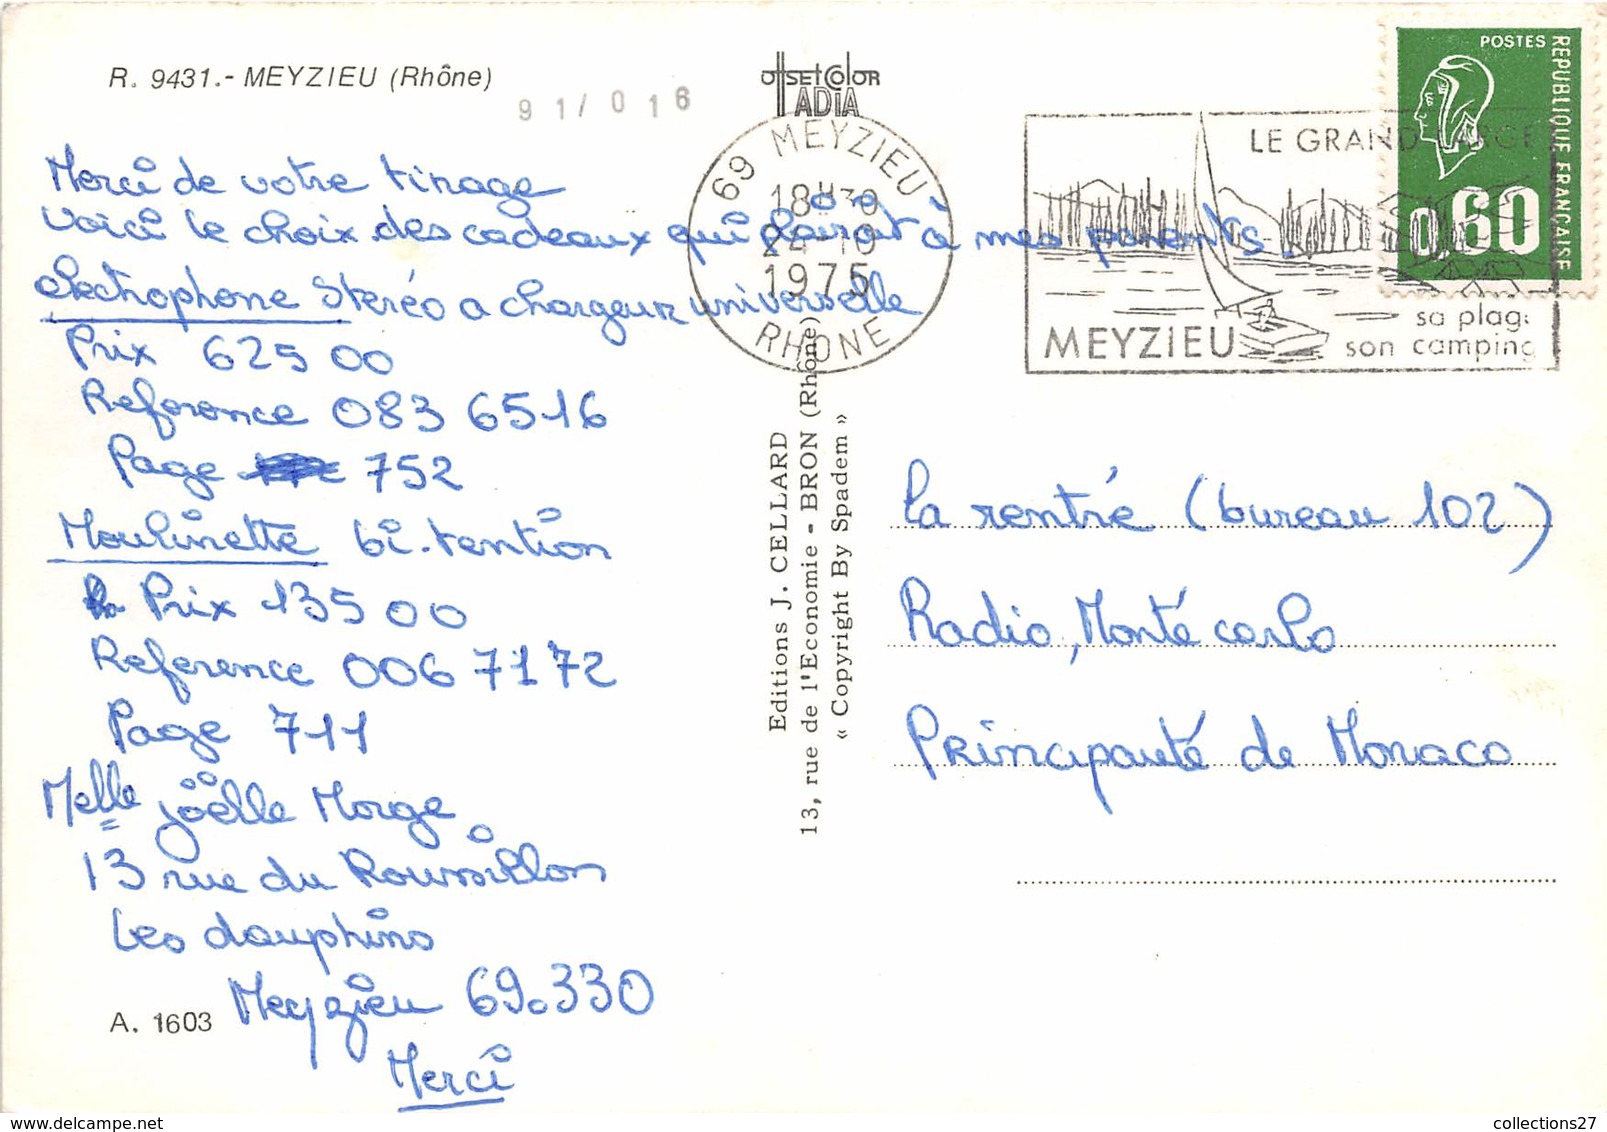 R. 9431.- MEYZIEU (Rhône)
91/016
OffSET COlOR
IADIA
69 MEYZIEU
18H30
24-10
1975
RHONE
LE GRAND LARGE
MEYZIEU
sa plage
son camping
POSTES
REPUBLIQUE FRANÇAISE
0,60
Merci de votre tirage
voici le choix des cadeaux qui plairait à mes parents.
electrophone Steréo a chargeur universelle
Prix 625 00
Reference 083 6516
Page 752
Moulinette bi-tention
Prix 135 00
Reference 006 7172
Page 711
Melle joëlle Morge
13 rue du Roussillon
Les dauphins
Meyzieu 69.330
Merci
A. 1603
Editions J. CELLARD
13, rue de l'Economie - BRON (Rhône)
« Copyright By Spadem »
La rentré (bureau 102)
Radio, Monté carlo
Principauté de Monaco
collections27